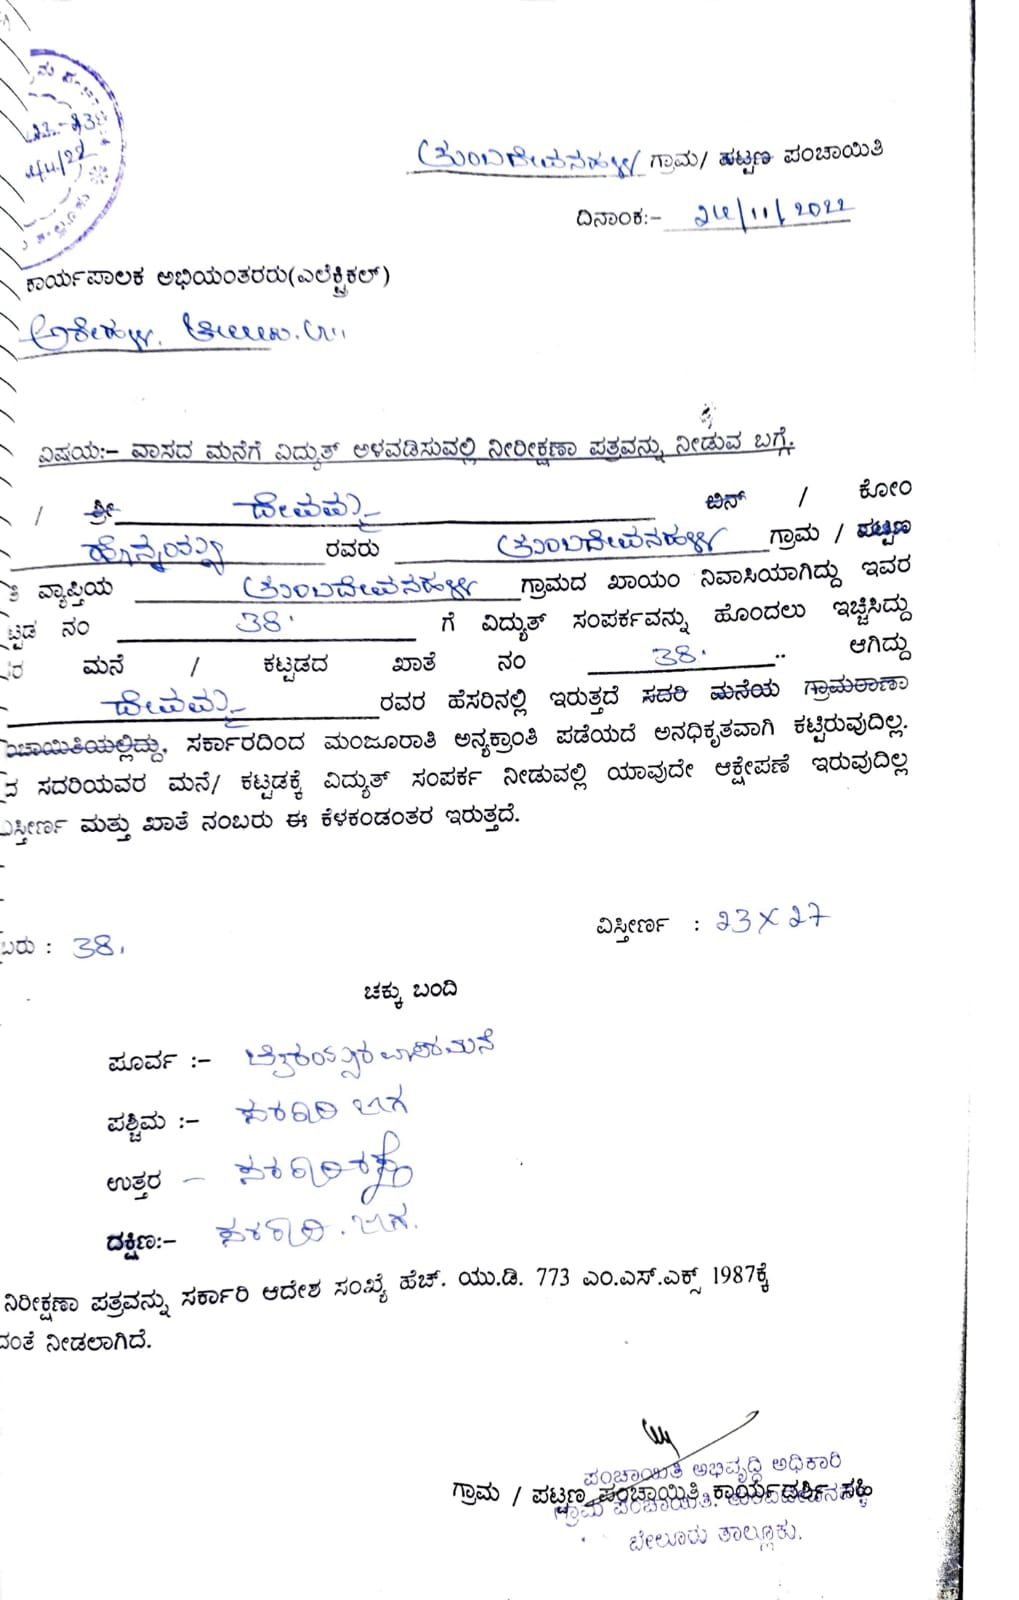 22-23
24/11/22
ತುಂಬದೇವನಹಳ್ಳಿ ಗ್ರಾಮ/ ಪಟ್ಟಣ ಪಂಚಾಯಿತಿ
ದಿನಾಂಕ:- 24/11/2022
ಕಾರ್ಯಪಾಲಕ ಅಭಿಯಂತರರು(ಎಲೆಕ್ಟ್ರಿಕಲ್)
ಅರೇಹಳ್ಳಿ.
ವಿಷಯ:- ವಾಸದ ಮನೆಗೆ ವಿದ್ಯುತ್ ಅಳವಡಿಸುವಲ್ಲಿ ನೀರೀಕ್ಷಣಾ ಪತ್ರವನ್ನು ನೀಡುವ ಬಗ್ಗೆ.
/ ಶ್ರೀ ದೇವಮ್ಮ ಬಿನ್ / ಕೋಂ
ಹೊನ್ನಯ್ಯ ರವರು ತುಂಬದೇವನಹಳ್ಳಿ ಗ್ರಾಮ / ಪಟ್ಟಣ
ವ್ಯಾಪ್ತಿಯ ತುಂಬದೇವನಹಳ್ಳಿ ಗ್ರಾಮದ ಖಾಯಂ ನಿವಾಸಿಯಾಗಿದ್ದು ಇವರ
ಟ್ಟಡ ನಂ 38. ಗೆ ವಿದ್ಯುತ್ ಸಂಪರ್ಕವನ್ನು ಹೊಂದಲು ಇಚ್ಚಿಸಿದ್ದು
ರ ಮನೆ / ಕಟ್ಟಡದ ಖಾತೆ ನಂ 38. .. ಆಗಿದ್ದು
ದೇವಮ್ಮ ರವರ ಹೆಸರಿನಲ್ಲಿ ಇರುತ್ತದೆ ಸದರಿ ಮನೆಯ ಗ್ರಾಮಠಾಣಾ
ಂಚಾಯಿತಿಯಲ್ಲಿದ್ದು. ಸರ್ಕಾರದಿಂದ ಮಂಜೂರಾತಿ ಅನ್ಯಕ್ರಾಂತಿ ಪಡೆಯದೆ ಅನಧಿಕೃತವಾಗಿ ಕಟ್ಟಿರುವುದಿಲ್ಲ.
ಸದರಿಯವರ ಮನೆ/ ಕಟ್ಟಡಕ್ಕೆ ವಿದ್ಯುತ್ ಸಂಪರ್ಕ ನೀಡುವಲ್ಲಿ ಯಾವುದೇ ಆಕ್ಷೇಪಣೆ ಇರುವುದಿಲ್ಲ
ಸ್ತೀರ್ಣ ಮತ್ತು ಖಾತೆ ನಂಬರು ಈ ಕೆಳಕಂಡಂತರ ಇರುತ್ತದೆ.
ವಿಸ್ತೀರ್ಣ : 23 X 27
ಬರು : 38.
ಚಕ್ಕು ಬಂದಿ
ಪೂರ್ವ :-
ಪಶ್ಚಿಮ :- ಸರಕಾರಿ ಜಾಗ
ಉತ್ತರ - ಸರಕಾರಿ ರಸ್ತೆ
ದಕ್ಷಿಣ:- ಸರಕಾರಿ. ಜಾಗ.
ನಿರೀಕ್ಷಣಾ ಪತ್ರವನ್ನು ಸರ್ಕಾರಿ ಆದೇಶ ಸಂಖ್ಯೆ ಹೆಚ್. ಯು.ಡಿ. 773 ಎಂ.ಎಸ್.ಎಕ್ಸ್ 1987ಕ್ಕೆ
ದಂತೆ ನೀಡಲಾಗಿದೆ.
ಪಂಚಾಯಿತಿ ಅಭಿವೃದ್ಧಿ ಅಧಿಕಾರಿ
ಗ್ರಾಮ / ಪಟ್ಟಣ ಪಂಚಾಯಿತಿ ಕಾರ್ಯದರ್ಶಿ ಸಹಿ
ಗ್ರಾಮ ಪಂಚಾಯಿತಿ.
ಬೇಲೂರು ತಾಲ್ಲೂಕು.